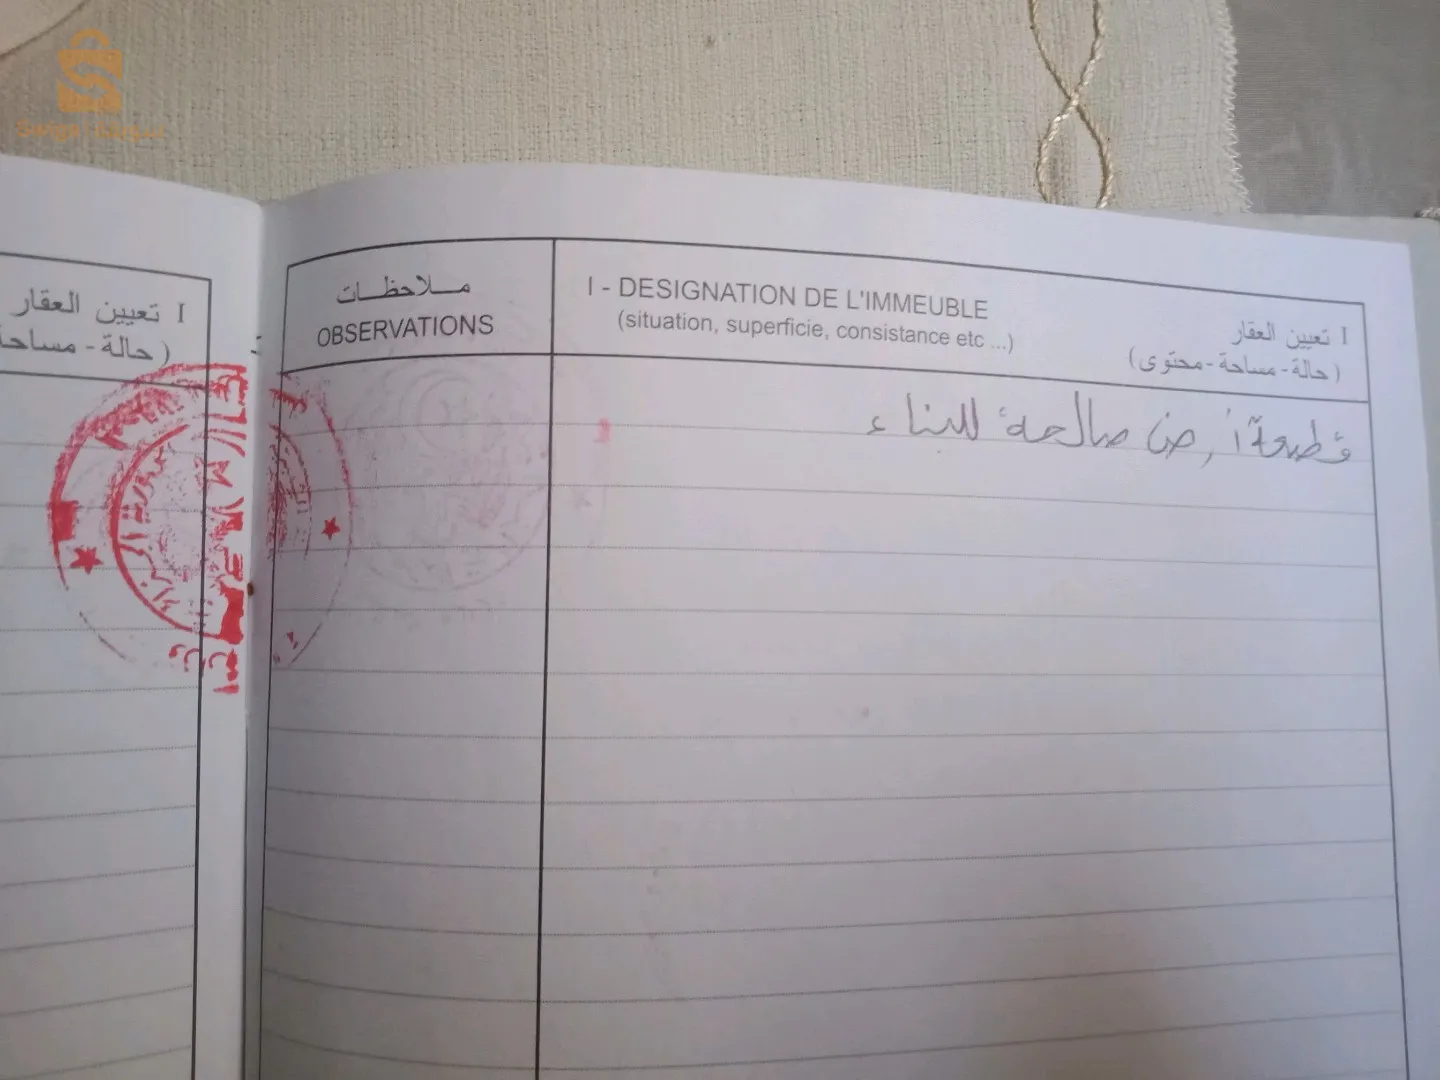 I تعيين العقار
(حالة - مساحة
ملاحظات
OBSERVATIONS
I - DESIGNATION DE L'IMMEUBLE
(situation, superficie, consistance etc ...)
I تعيين العقار
(حالة - مساحة - محتوى)
قطعة أرض صالحة للبناء